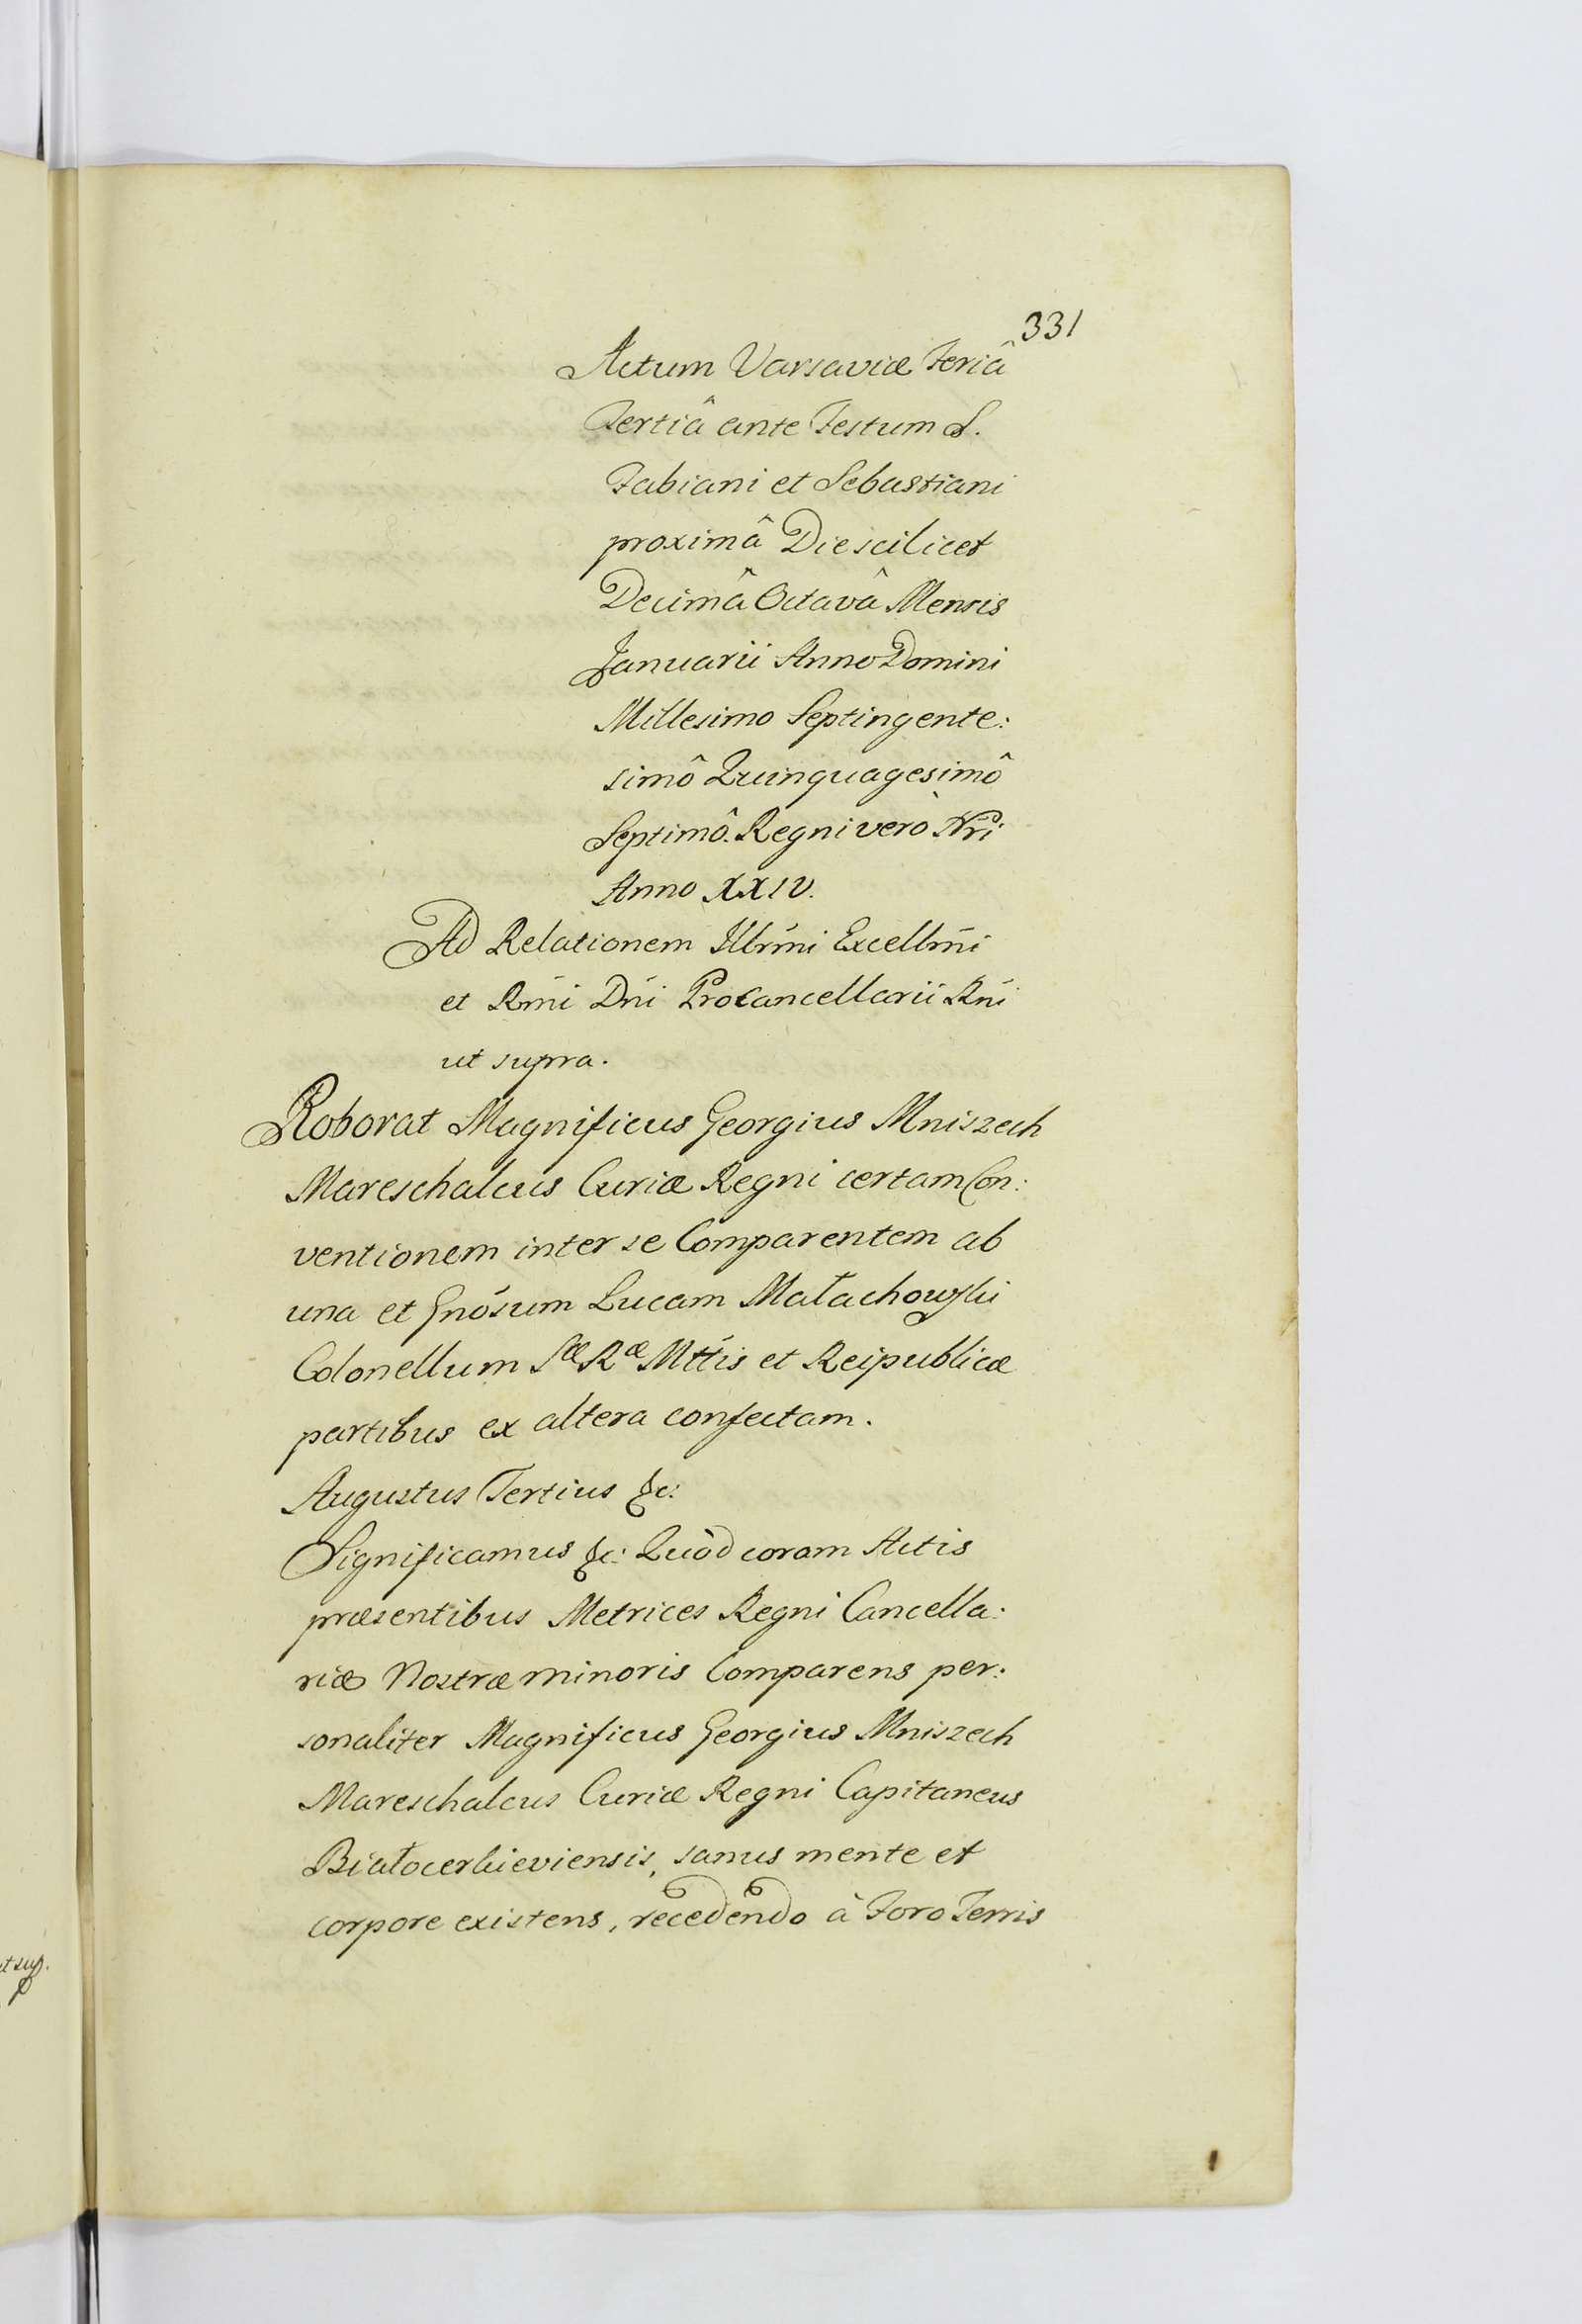 331
Actum Varsaviæ Feriâ
Tertiâ ante Festum S.
Fabiani et Sebastiani
proximâ Die scilicet
Decimâ Octavâ Mensis
Januarii Anno Domini
Millesimo Septingente:
simô Quinquagesimô
Septimô. Regni verò Nri
Anno XXIV.
Ad Relationem Illrmi Excellmi
et Rmi Dni ProCancellarii Rni
ut supra.
Roborat Magnificus Georgius Mniszech
Mareschalcus Curiæ Regni certam Con:
ventionem inter se Comparentem ab
una et Gnosum Lucam Małachowski
Colonellum Sæ Ræ Mttis et Reipublicæ
partibus ex altera confectam.
Augustus Tertius &c:
Significamus &c: Quòd coram Actis
præsentibus Metrices Regni Cancella:
riæ Nostræ minoris Comparens per:
sonaliter Magnificus Georgius Mniszech
Mareschalcus Curiæ Regni Capitaneus
Białocerkieviensis, sanus mente et
corpore existens, recedendo à Foro Terris
t sup.